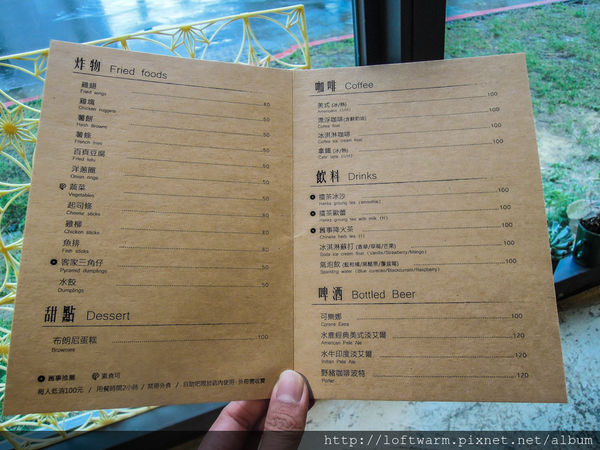 炸物 Fried foods
雞翅 60
Fried wings
雞塊 50
Chicken nuggets
薯餅 50
Hash Browns
薯條 50
French fries
百頁豆腐 50
Fried tofu
洋蔥圈 50
Onion rings
蔬菜 50
Vegetables
起司條 50
Cheese sticks
雞柳 50
Chicken sticks
魚排 50
Fish sticks
客家三角仔 50
Pyramid dumplings
水餃 50
Dumplings
甜點 Dessert
布朗尼蛋糕 100
Brownies
舊事推薦 素食可
每人低消100元 / 用餐時間2小時 / 禁帶外食 /
咖啡 Coffee
美式 (冰/熱) 100
Americano
漂浮咖啡 100
Coffee float
冰淇淋咖啡 100
Coffee ice cream float
拿鐵 (冰/熱) 100
Cafe latte
飲料 Drinks
擂茶冰沙 100
Hakka groung tea (smoothie)
擂茶歐蕾 100
Hakka groung tea with milk
舊事降火茶 100
Chinese herb tea
冰淇淋蘇打 (香草/草莓/芒果) 100
Soda ice cream float (Vanilla/Strawberry/Mango)
氣泡飲 100
Sparkling water (Blue curacao/Blackcurrant/Raspberry)
啤酒 Bottled Beer
可樂娜 100
Corona Extra
水鹿經典美式淡艾爾 120
American Pale Ale
水牛印度淡艾爾 120
Indian Pale Ale
野豬咖啡波特 120
Porter
http://loftwarm.pixnet.net/album